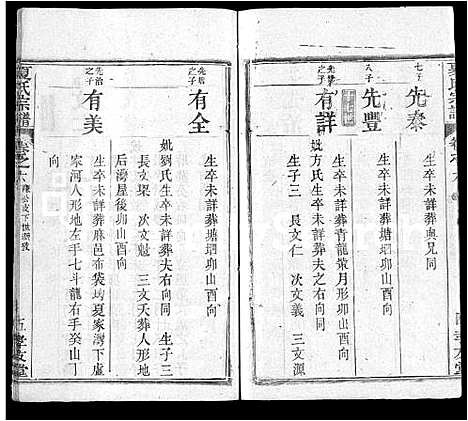 夏氏宗譜
卷之六
七子
先泰
生卒未詳葬與兄同
八子
先豐
生卒未詳葬塘垻卯山酉向
先 之子
有詳
生卒未詳葬青龍策月形卯山酉向
妣方氏生卒未詳葬夫之右向同
生子三 長文仁 次文義 三文源
先 之子
有全
生卒未詳葬塘垻卯山酉向
妣劉氏生卒未詳葬夫右向同 生子三
長文梁 次文魁 三文天葬人形地
后灣屋後卯山酉向
先治之子
有美
生卒未詳葬麻邑布袋 夏家灣下嚴
家河人形地左手七斗龍右手癸山丁
向
夏氏宗譜
卷之六
公支下世系